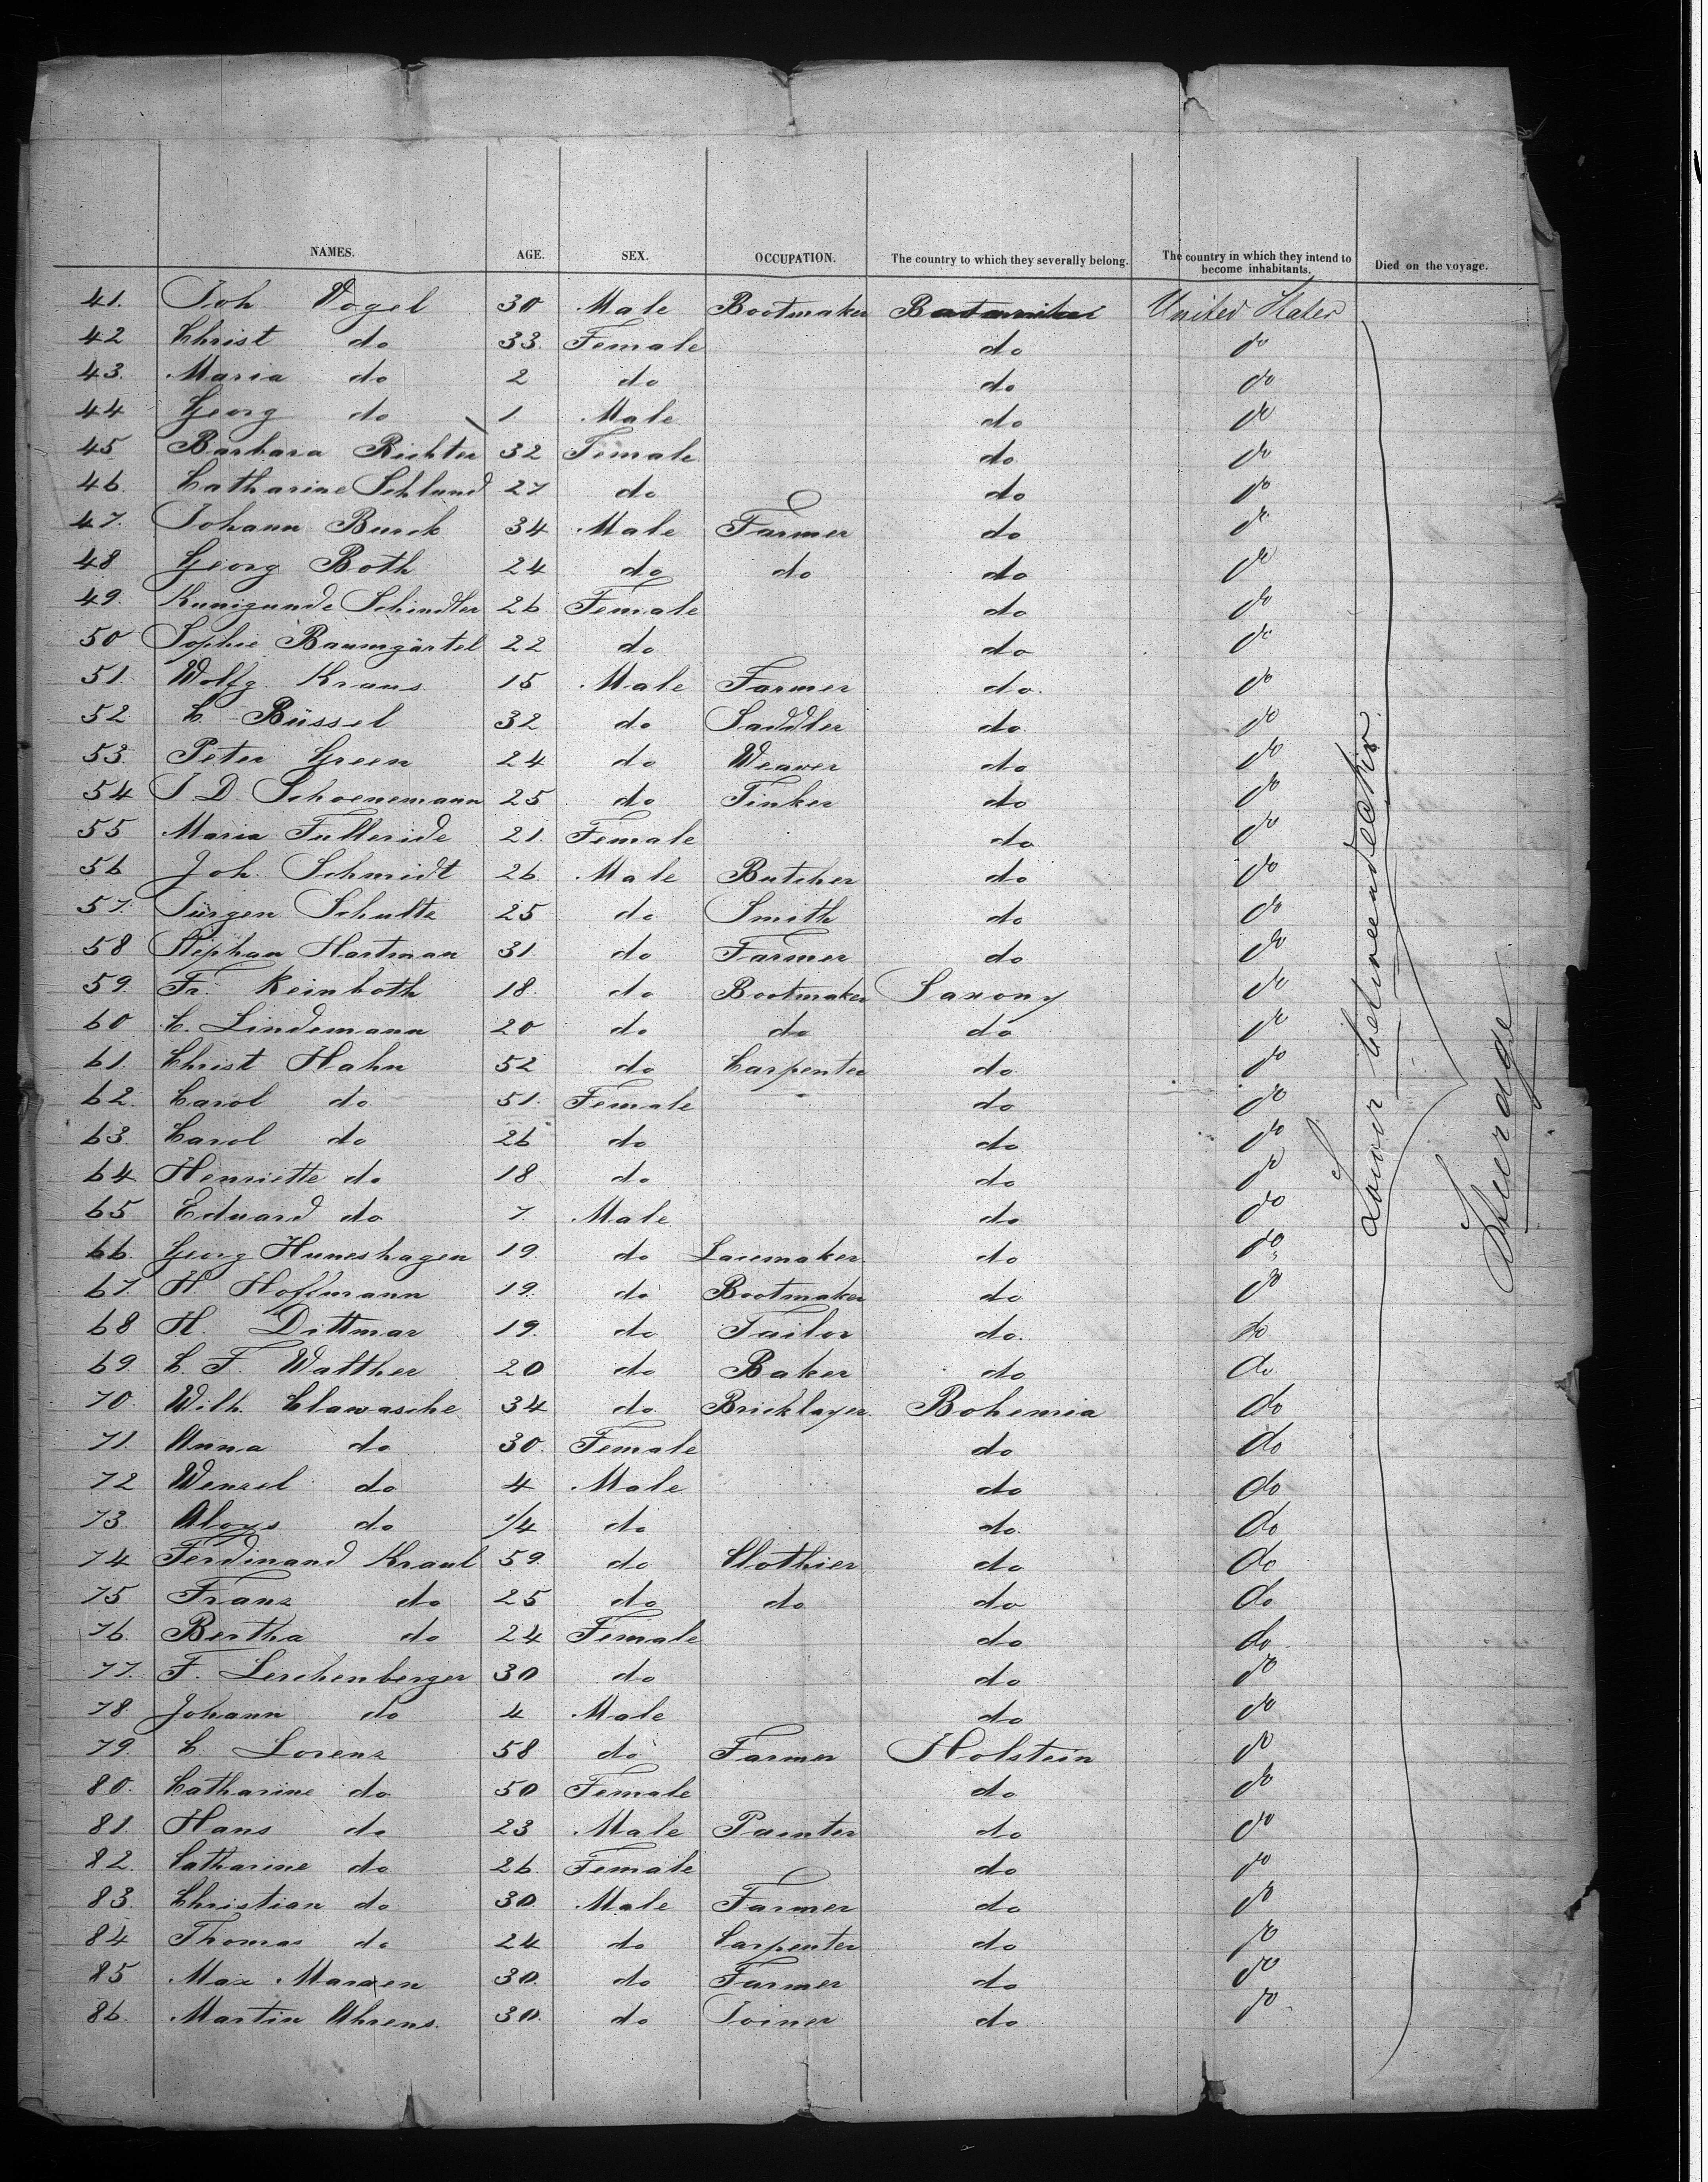 NAMES. AGE. SEX. OCCUPATION. The country to which they severally belong. The country in which they intend to become inhabitants. Died on the voyage.
41. Joh Vogel 30 Male Bootmaker United States
42 Christ do 33. Female do do
43. Maria do 2 do do do
44 Georg do 1. Male do do
45 Barbara Richter 32 Female do do
46. Catharine Schlund 27 do do do
47. Johann Burck 34 Male Farmer do do
48 Georg Both 24 do do do do
49. Kunigunde Schindler 26. Female do do
50 Sophie Baumgärtel 22 do do do
51. Wolfg. Kraus 15 Male Farmer do. do
52. C. Büssel 32 do Saddler do do
53. Peter Green 24 do Weaver do do
54 J. D. Schoenemann 25 do Tinker do do
55 Maria 21. Female do do
56 Joh. Schmidt 26. Male Butcher do do
57. Jürgen Schulte 25 do Smith do do
58 Stephan Hartman 31. do Farmer do do
59. Fr. Reinhoth 18. do Bootmaker Saxony do
60 C. Lindemann 20 do do do do
61. Christ Hahn 52 do Carpenter do do
62. Carol do 51. Female do do
63. Carol do 26 do do do
64 Henriette do 18 do do do
65 Eduard do 7. Male do do
66. Georg Huneshagen 19. do Lacemaker do do
67. H. Hoffmann 19. do Bootmaker do do
68 H. Dittmar 19. do Tailor do. do
69. C. F. Walther 20 do Baker do do
70. Wilh. Clawasche 34 do Bricklayer Bohemia do
71. Anna do 30. Female do do
72 Wenzel do 4 Male do do
73. Aloys do 1/4 do do do
74 Ferdinand Kraul 59. do Clothier do do
75 Franz do 25 do do do do
76. Bertha do 24 Female do do
77. F. Lerchenberger 30 do do do
78. Johann do 4 Male do do
79. C. Lorenz 58 do Farmer Holstein do
80. Catharine do 50 Female do do
81. Hans do 23 Male Painter do do
82. Catharine do 26. Female do do
83. Christian do 30. Male Farmer do do
84 Thomas do 24 do Carpenter do do
85 Max Marxen 30. do Farmer do do
86. Martin Ahrens. 30. do Joiner do do
Lower betweendecks.
Steerage